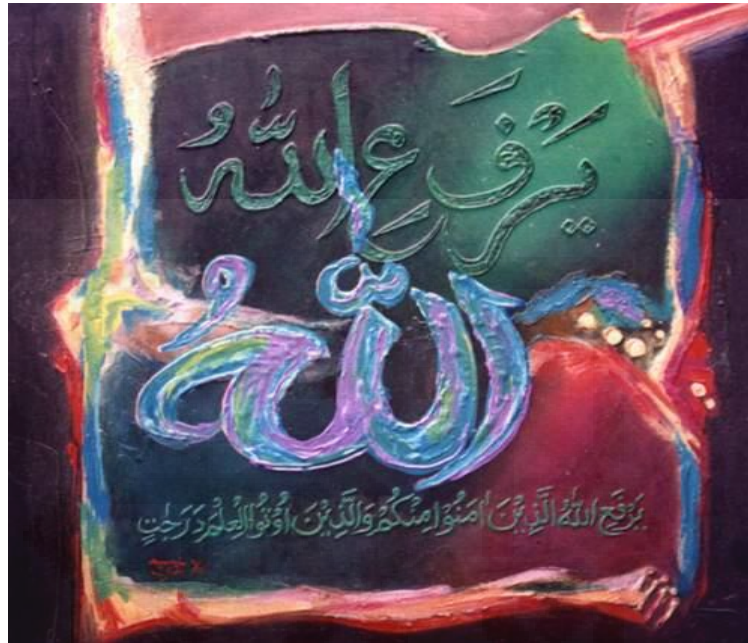 يَرْفَعِ اللّٰهُ
اللّٰهُ
يَرْفَعِ اللّٰهُ الَّذِيْنَ اٰمَنُوْا مِنْكُمْ وَالَّذِيْنَ اُوْتُوا الْعِلْمَ دَرَجٰتٍ